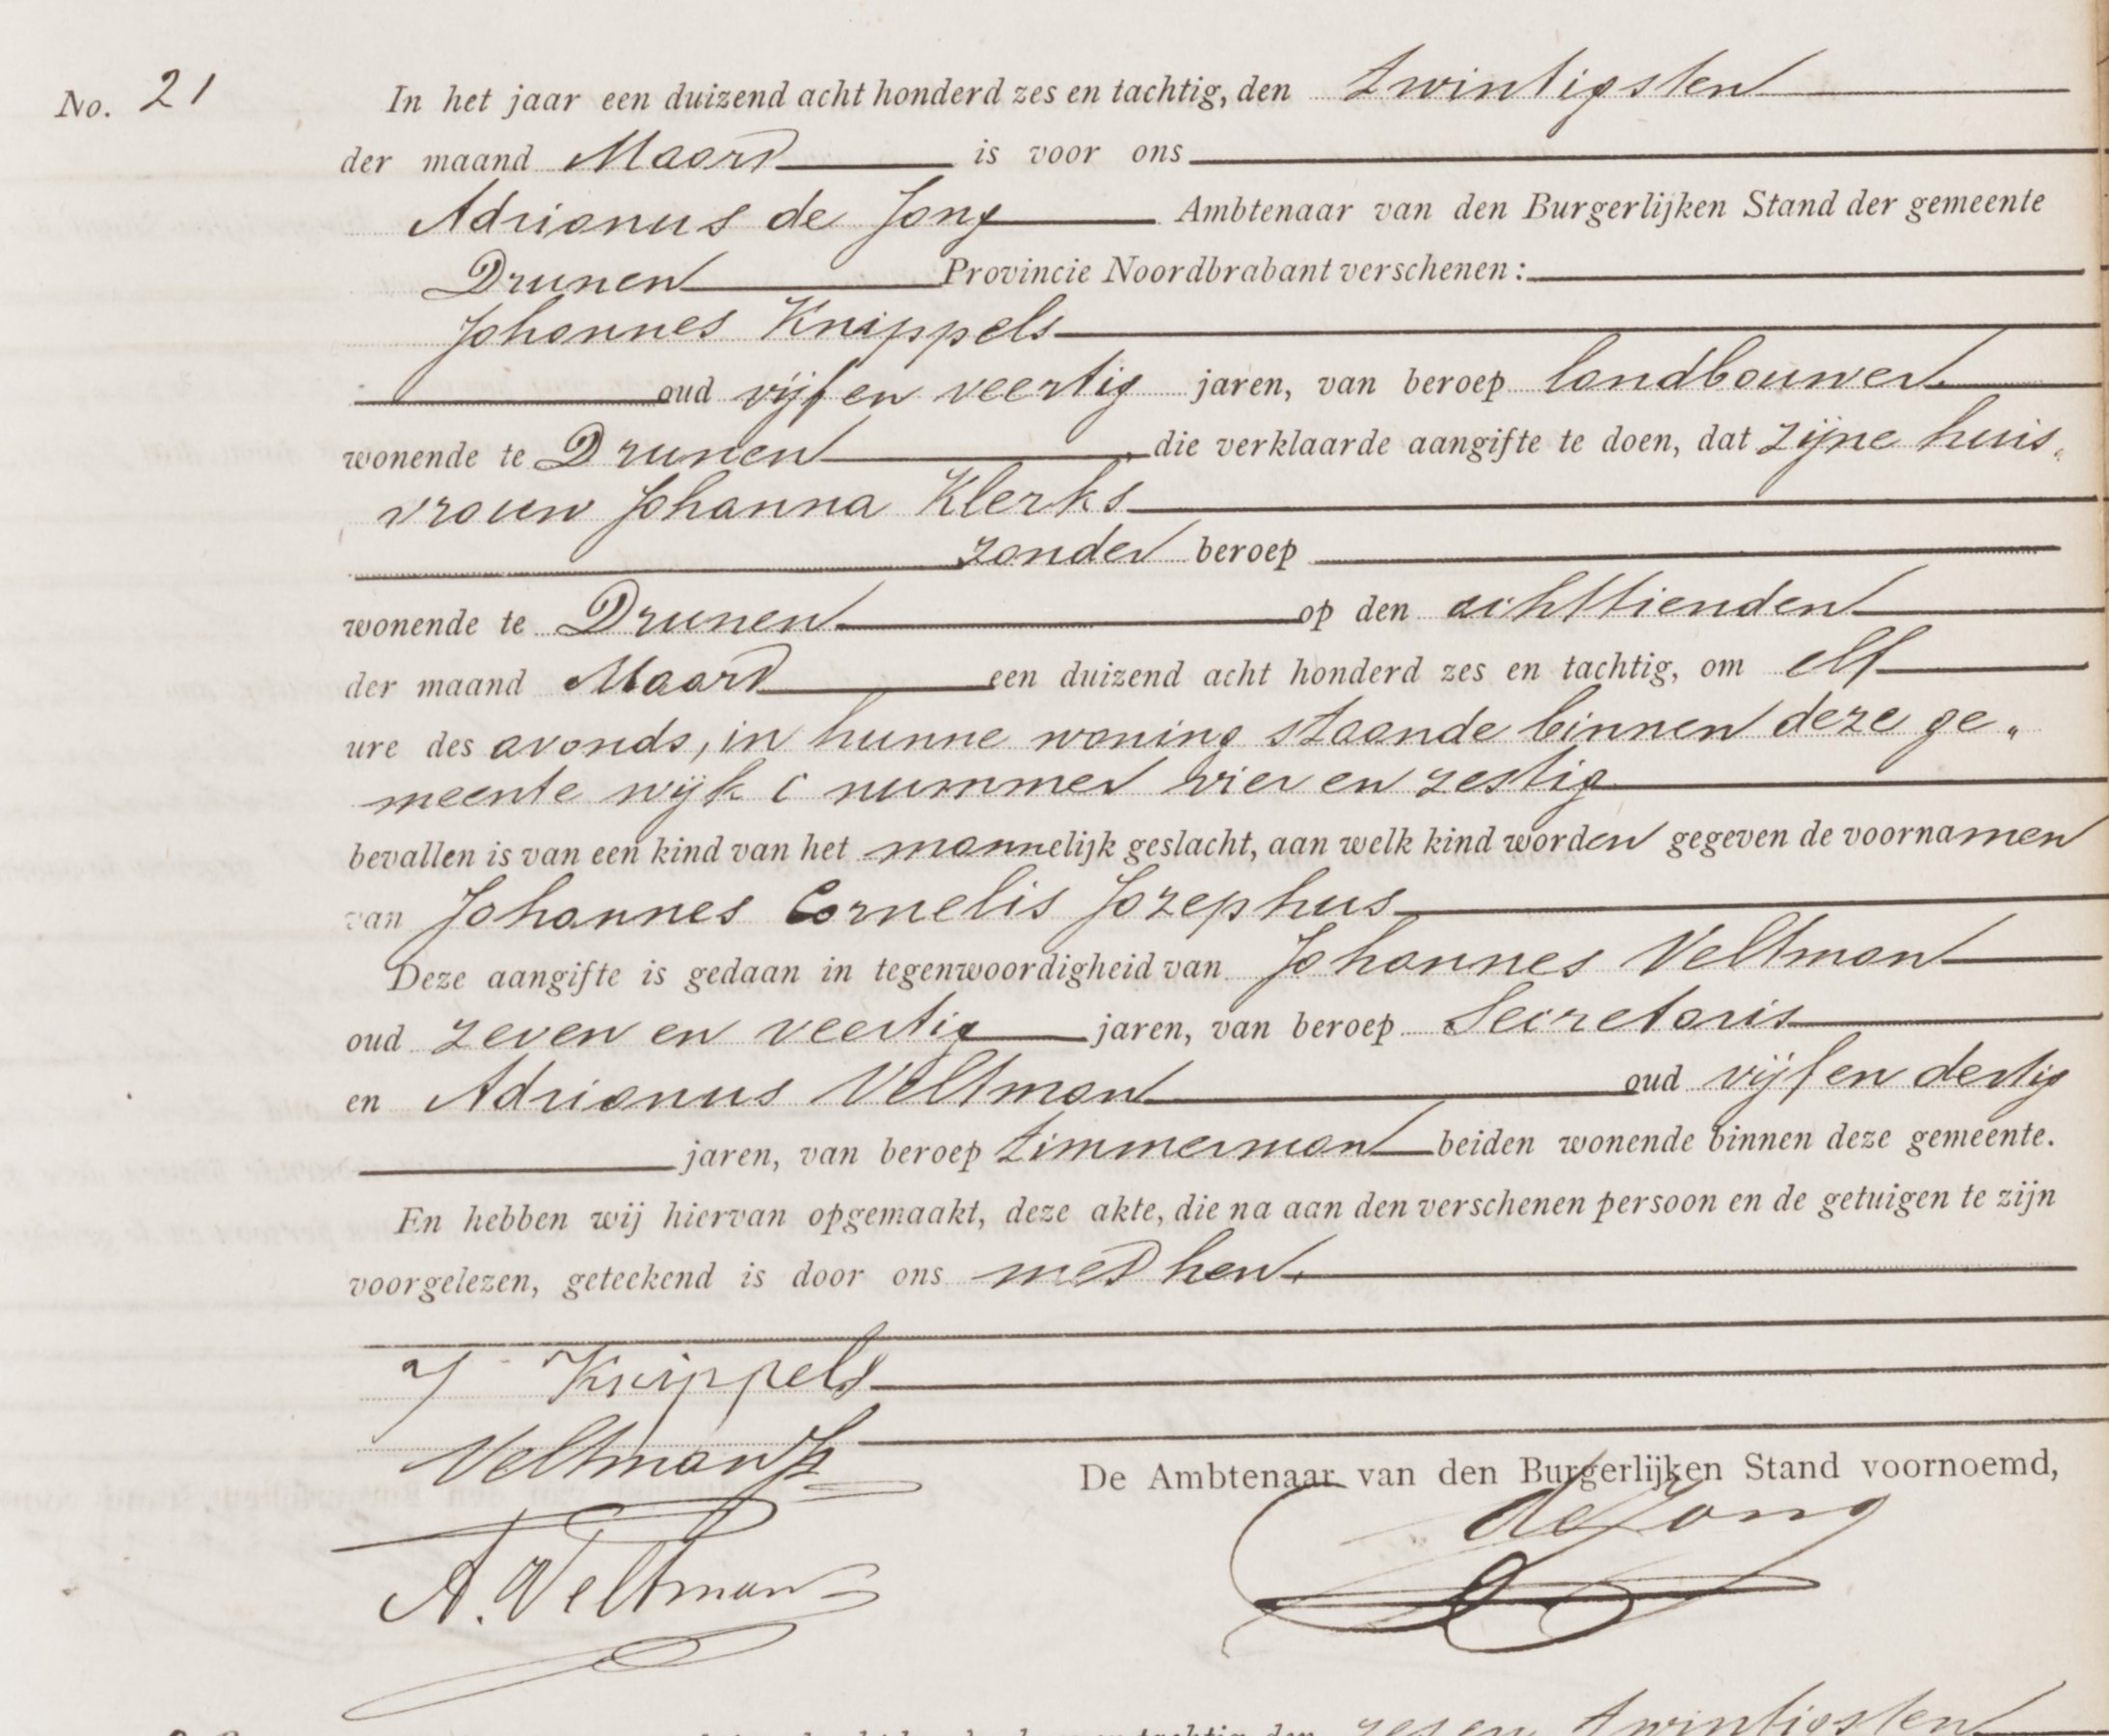 No. 21
In het jaar een duizend acht honderd zes en tachtig, den twintigsten
der maand Maart is voor ons
Adrianus de Jong Ambtenaar van den Burgerlijken Stand der gemeente
Drunen Provincie Noordbrabant verschenen:
Johannes Knippels
oud vijf en veertig jaren, van beroep landbouwer
wonende te Drunen die verklaarde aangifte te doen, dat zijne huis„
vrouw Johanna Klerks
zonder beroep
wonende te Drunen op den achttienden
der maand Maart een duizend acht honderd zes en tachtig, om elf
ure des avonds, in hunne woning staande binnen deze ge„
meente wijk C nummer vier en zestig
bevallen is van een kind van het mannelijk geslacht, aan welk kind worden gegeven de voornamen
van Johannes Cornelis Jozephus
Deze aangifte is gedaan in tegenwoordigheid van Johannes Veltman
oud zeven en veertig jaren, van beroep Secretaris
en Adrianus Veltman oud vijf en dertig
jaren, van beroep timmerman beiden wonende binnen deze gemeente.
En hebben wij hiervan opgemaakt, deze akte, die na aan den verschenen persoon en de getuigen te zijn
voorgelezen, geteekend is door ons met hen.
J Knippels
Veltman Js
De Ambtenaar van den Burgerlijken Stand voornoemd,
de Jong
A. Veltman
zes en twintigsten